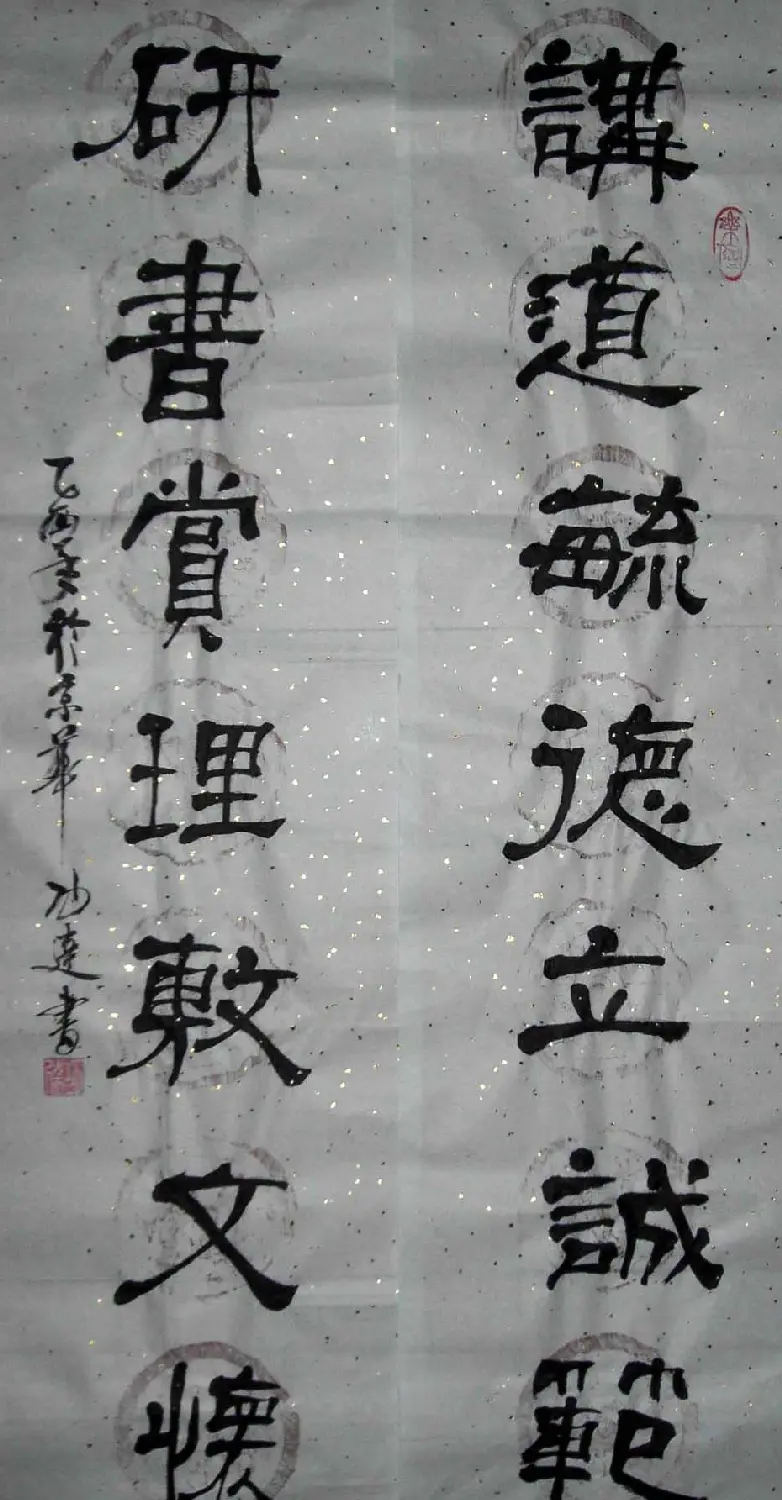 講道毓德立誠範
研書賞理敷文懷
乙酉年於京華 達書